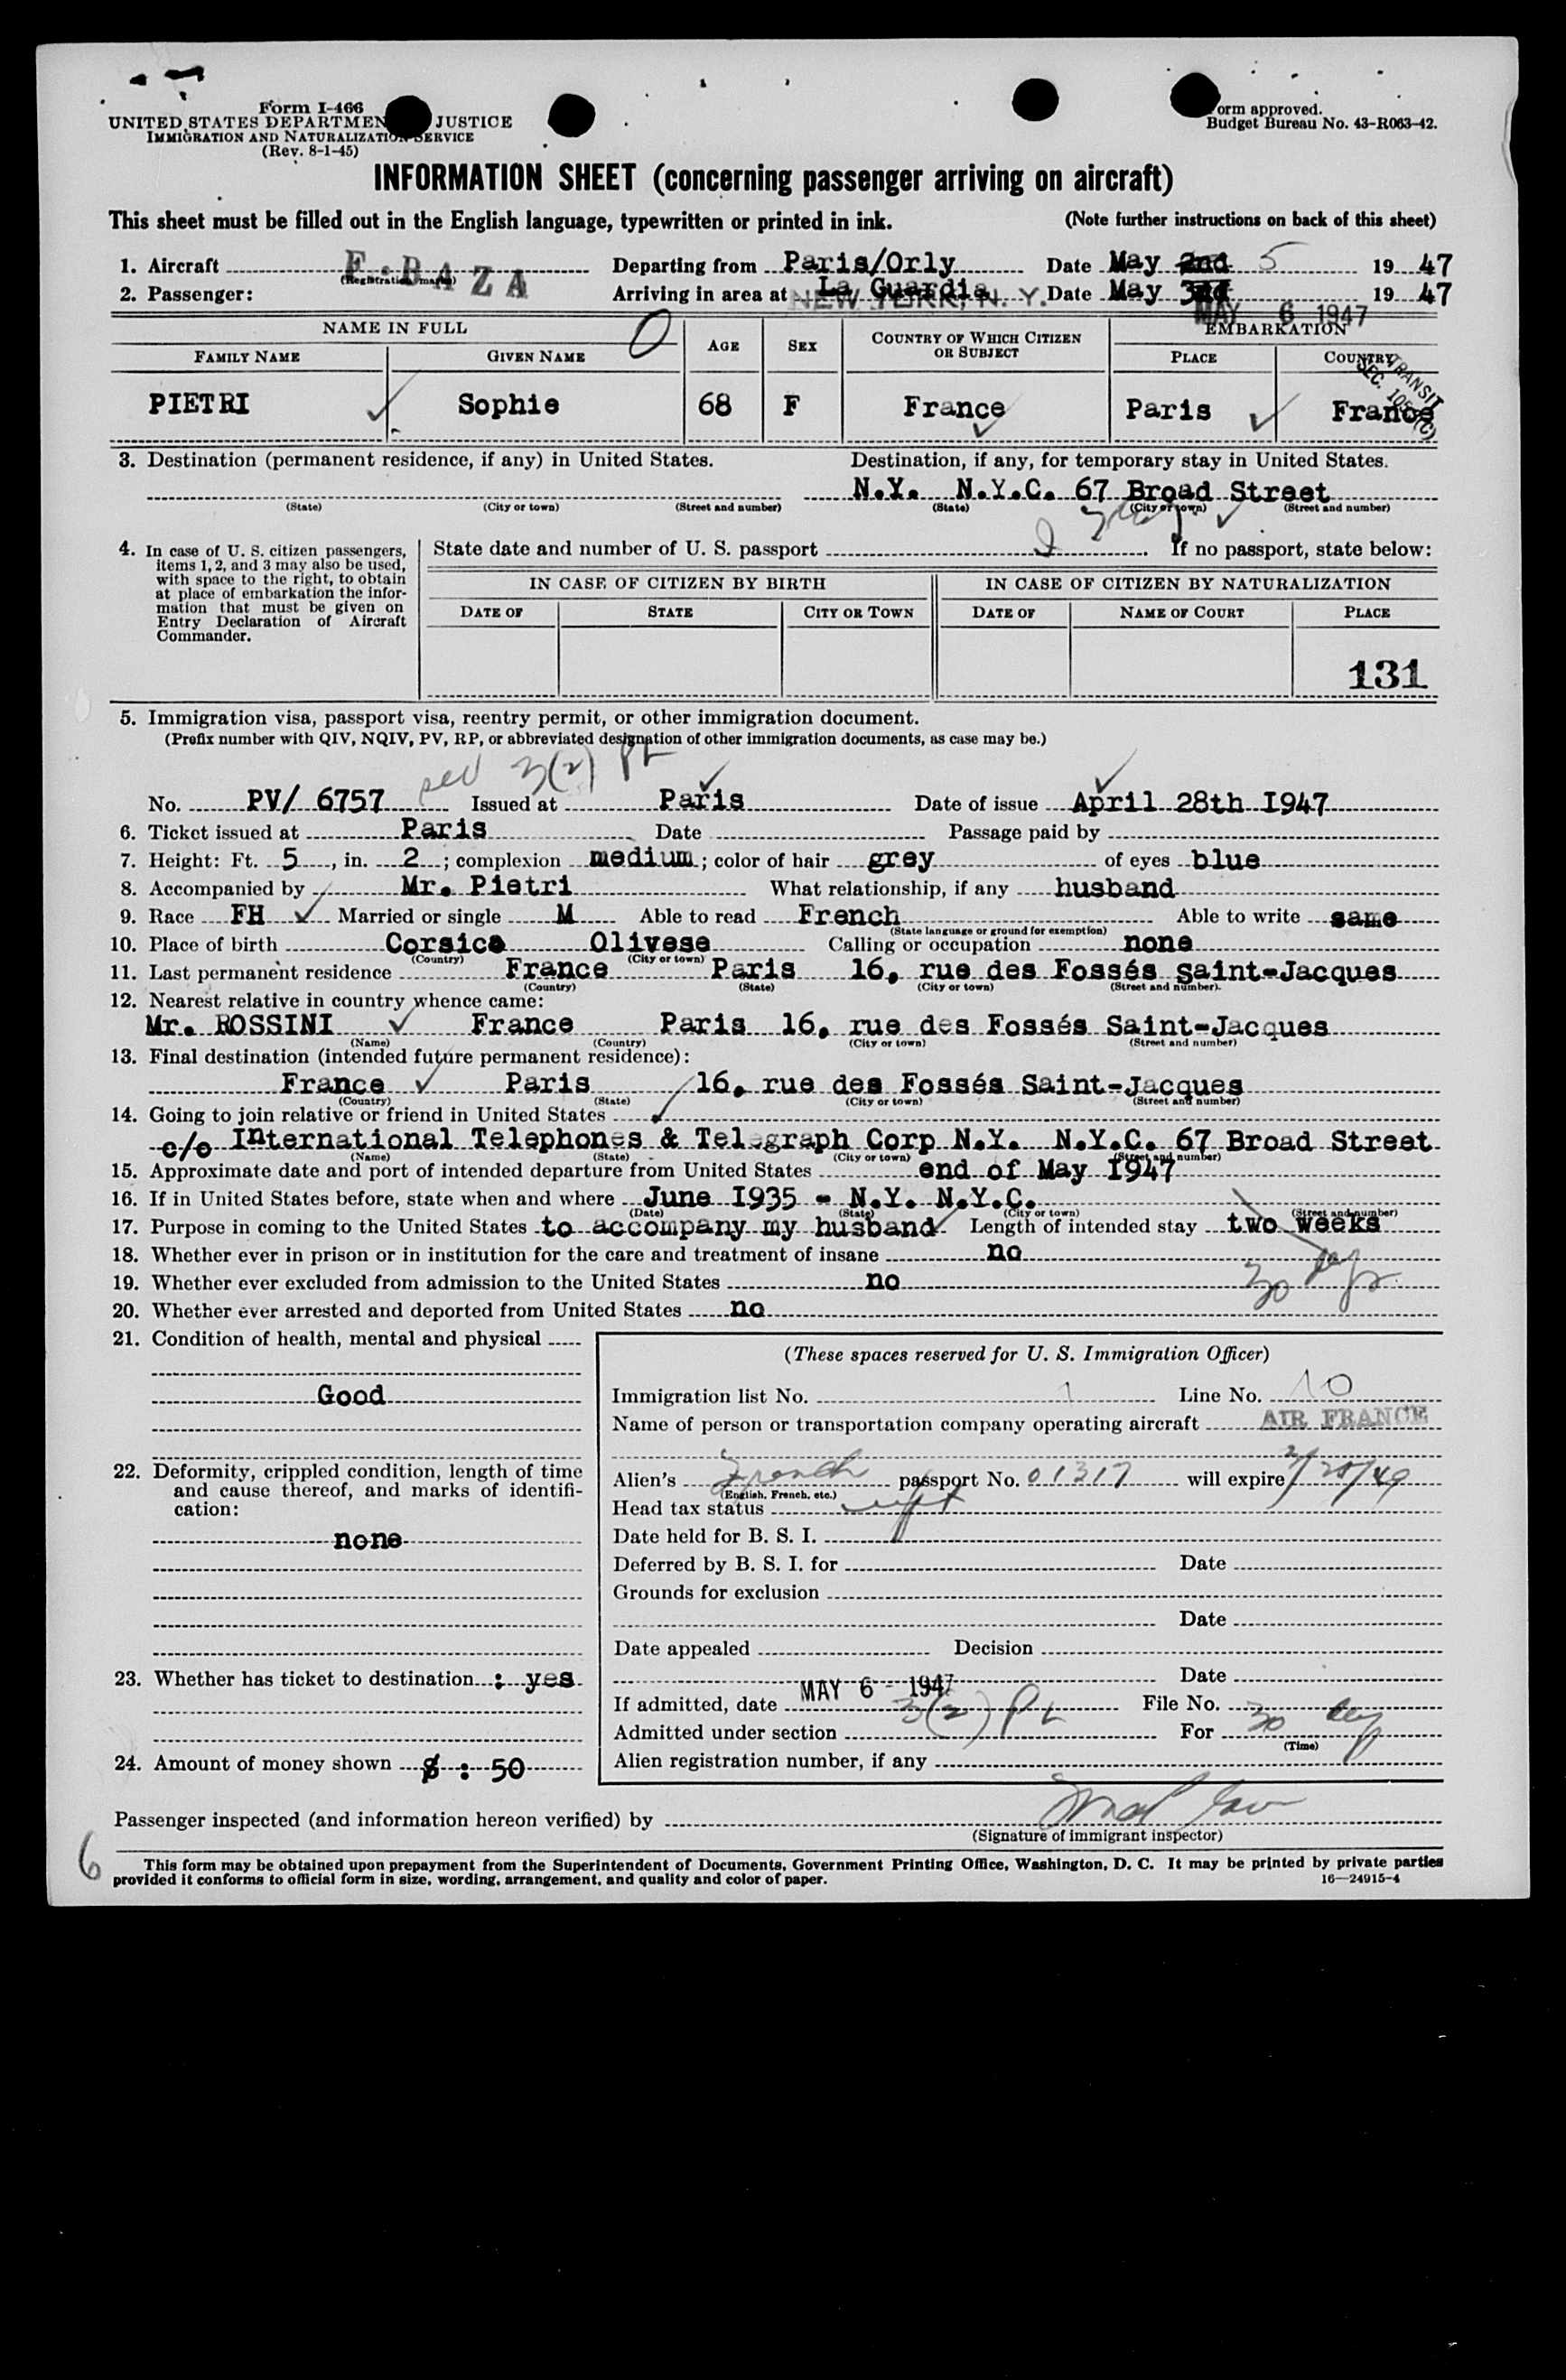 Form I-466
UNITED STATES DEPARTMEN JUSTICE
IMMIGRATION AND NATURALIZATION SERVICE
(Rev. 8-1-45)
orm approved.
Budget Bureau No. 43-R063-42.
INFORMATION SHEET (concerning passenger arriving on aircraft)
This sheet must be filled out in the English language, typewritten or printed in ink. (Note further instructions on back of this sheet)
1. Aircraft F-BAZA Departing from Paris/Orly Date May 2nd 5 1947
(Registration marks)
2. Passenger: Arriving in area at La Guardia NEW YORK, N. Y. Date May 3rd 1947
MAY 6 1947
NAME IN FULL EMBARKATION
FAMILY NAME GIVEN NAME AGE SEX COUNTRY OF WHICH CITIZEN OR SUBJECT PLACE COUNTRY
TRANSIT
PIETRI Sophie 68 F France Paris France
3. Destination (permanent residence, if any) in United States. Destination, if any, for temporary stay in United States.
N.Y. N.Y.C. 67 Broad Street
(State) (City or town) (Street and number) (State) (City or town) (Street and number)
4. In case of U. S. citizen passengers, items 1, 2, and 3 may also be used, with space to the right, to obtain at place of embarkation the information that must be given on Entry Declaration of Aircraft Commander.
State date and number of U. S. passport If no passport, state below:
IN CASE OF CITIZEN BY BIRTH IN CASE OF CITIZEN BY NATURALIZATION
DATE OF STATE CITY OR TOWN DATE OF NAME OF COURT PLACE
131
5. Immigration visa, passport visa, reentry permit, or other immigration document.
(Prefix number with QIV, NQIV, PV, RP, or abbreviated designation of other immigration documents, as case may be.)
3(2)
No. PV/ 6757 Issued at Paris Date of issue April 28th I947
6. Ticket issued at Paris Date Passage paid by
7. Height: Ft. 5, in. 2; complexion medium; color of hair grey of eyes blue
8. Accompanied by Mr. Pietri What relationship, if any husband
9. Race FH Married or single M Able to read French Able to write same
(State language or ground for exemption)
10. Place of birth Corsica Olivese Calling or occupation none
(Country) (City or town)
11. Last permanent residence France Paris 16, rue des Fossés Saint-Jacques
(Country) (State) (City or town) (Street and number)
12. Nearest relative in country whence came:
Mr. ROSSINI France Paris 16, rue des Fossés Saint-Jacques
(Name) (Country) (City or town) (Street and number)
13. Final destination (intended future permanent residence):
France Paris 16, rue des Fossés Saint-Jacques
(Country) (State) (City or town) (Street and number)
14. Going to join relative or friend in United States
c/o International Telephones & Telegraph Corp N.Y. N.Y.C. 67 Broad Street
(Name) (State) (City or town) (Street and number)
15. Approximate date and port of intended departure from United States end of May I947
16. If in United States before, state when and where June I935 - N.Y. N.Y.C.
(Date) (State) (City or town) (Street and number)
17. Purpose in coming to the United States to accompany my husband Length of intended stay two weeks
30 days
18. Whether ever in prison or in institution for the care and treatment of insane no
19. Whether ever excluded from admission to the United States no
20. Whether ever arrested and deported from United States no
21. Condition of health, mental and physical
Good
22. Deformity, crippled condition, length of time and cause thereof, and marks of identification:
none
23. Whether has ticket to destination : yes
24. Amount of money shown $ : 50
(These spaces reserved for U. S. Immigration Officer)
Immigration list No. 1 Line No. 10
Name of person or transportation company operating aircraft AIR FRANCE
Alien's French passport No. 01317 will expire 2/28/49
(English, French, etc.)
Head tax status
Date held for B. S. I.
Deferred by B. S. I. for Date
Grounds for exclusion
Date
Date appealed Decision
Date
If admitted, date MAY 6 - 1947 File No.
Admitted under section 3(2) For 30 days
(Time)
Alien registration number, if any
Passenger inspected (and information hereon verified) by
(Signature of immigrant inspector)
6
This form may be obtained upon prepayment from the Superintendent of Documents, Government Printing Office, Washington, D. C. It may be printed by private parties
provided it conforms to official form in size, wording, arrangement, and quality and color of paper. 16—24915-4